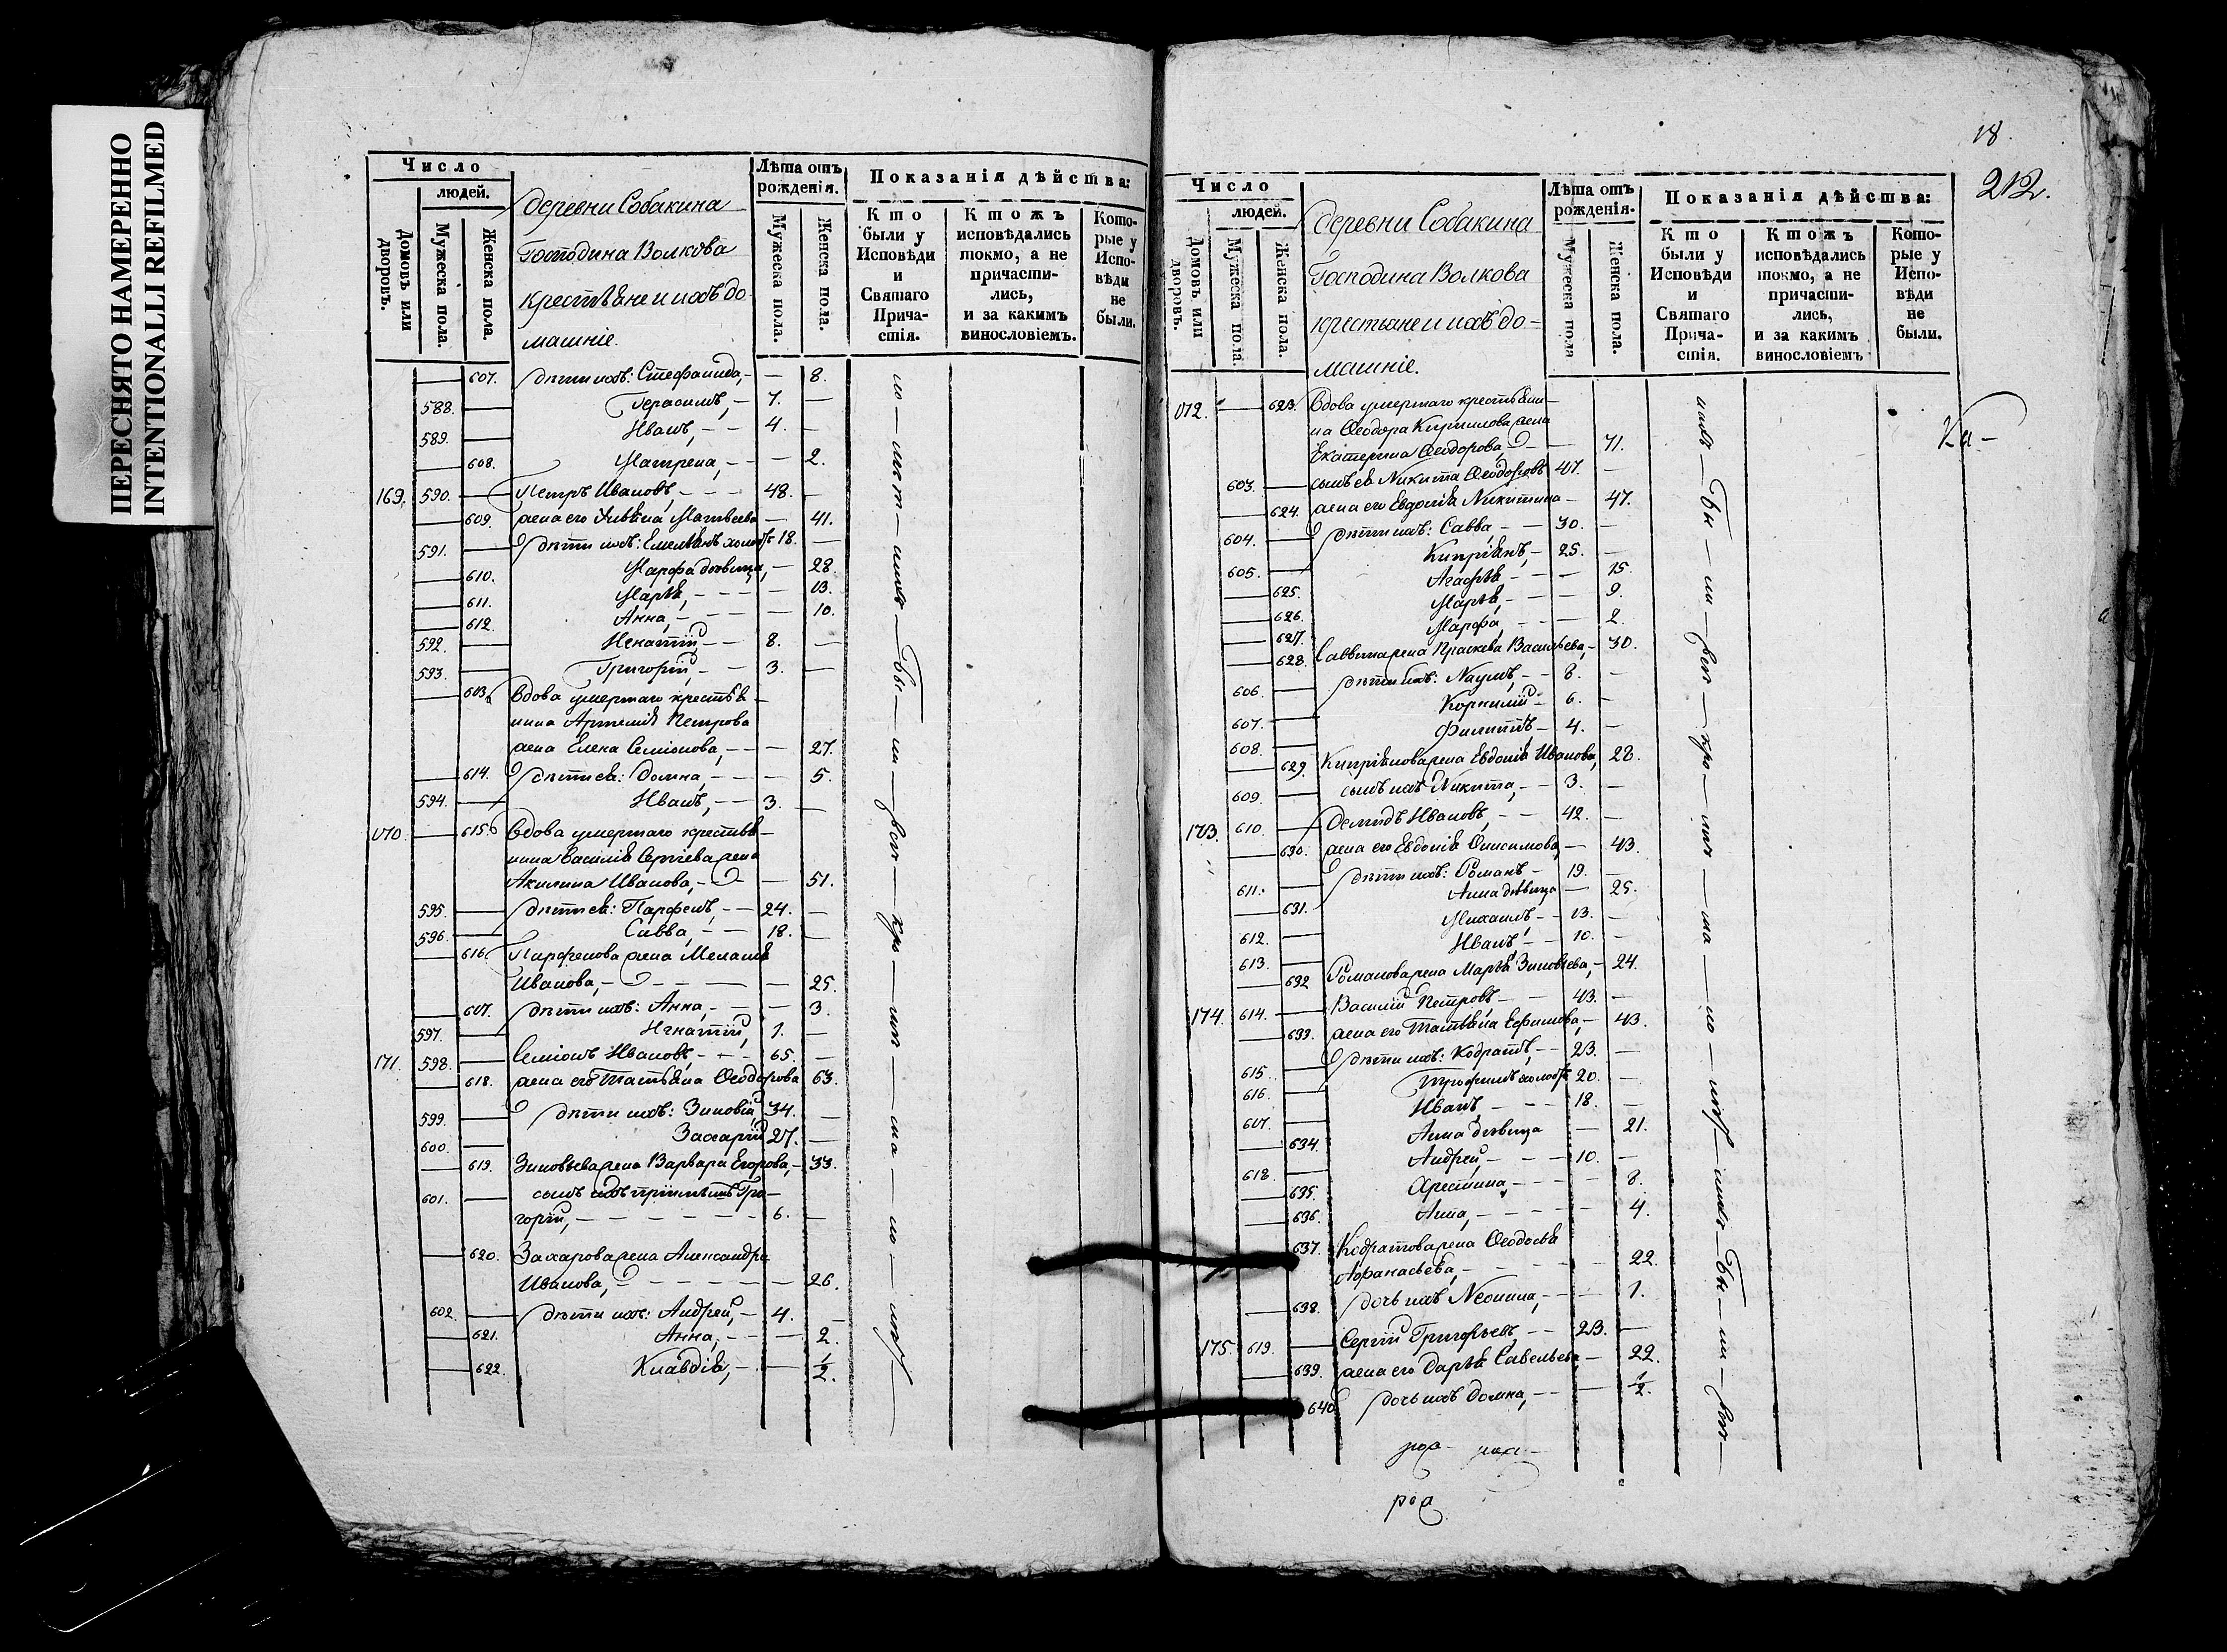 ПЕРЕСНЯТО НАМЕРЕННО
INTENTIONALLI REFILMED
Число
людей.
Домовъ или дворовъ.
Мужеска пола.
Женска пола.
деревни Собакина
Господина Волкова
крестьяне и ихъ до
машніе.
Лѣта отъ рожденія.
Мужеска пола.
Женска пола.
Показанія дѣйства:
Кто были у Исповѣди и Святаго Причастія.
Ктожъ исповѣдались токмо, а не причастились, и за какимъ винословіемъ.
Которые у Исповѣди не были.
607. дѣти ихъ: Стефанида, — 8.
588. Герасимъ, 7. —
589. Иванъ, 4. —
608. Матрена, — 2.
169. 590. Петръ Ивановъ, 48. —
609. жена его Матвеева — 41.
591. дѣти ихъ: Емельянъ холостъ 18. —
610. Марфа дѣвица, — 28.
611. Марья, — 13.
612. Анна, — 10.
592. Игнатій, 8. —
593. Григорій, 3. —
613. вдова умершаго крестья-
нина Артемія Петрова
жена Елена Семіонова, — 27.
614. дѣти ея: Домна, — 5.
594. Иванъ, 3. —
170. 615. вдова умершаго крестья-
нина Василія Сергіева жена
Акилина Иванова, — 51.
595. дѣти ея: Парфенъ, 24. —
596. Савва, 18. —
616. Парфенова жена Меланья
Иванова, — 25.
617. дѣти ихъ: Анна, — 3.
597. Игнатій, 1. —
171. 598. Семіонъ Ивановъ, 65. —
618. жена его Татьяна Ѳеодорова 63.
599. дѣти ихъ: Зиновій, 34. —
600. Захарій, 27. —
619. Зиновьева жена Варвара Егорова, — 33.
601. сынъ ихъ Гри-
горій, 6. —
620. Захарова жена Александра
Иванова, — 26.
602. дѣти ихъ: Андрей, 4. —
621. Анна, — 2.
622. Клавдія, — 1/2.
18.
212.
Число
людей.
Домовъ или дворовъ.
Мужеска пола.
Женска пола.
деревни Собакина
Господина Волкова
крестьяне и ихъ до-
машніе.
Лѣта отъ рожденія.
Мужеска пола
Женска пола.
Показанія дѣйства:
Кто были у Исповѣди и Святаго Причастія.
Ктожъ исповѣдались токмо, а не причастились, и за какимъ винословіемъ
Которые у Исповѣди не были.
172. 623. вдова умершаго крестьяни-
на Ѳеодора Кирилова жена
Екатерина Ѳеодорова, — 71.
603. сынъ ея Никита Ѳеодоровъ 47. —
624. жена его Евдокія Никитина — 47.
604. дѣти ихъ: Савва, 30. —
605. Кипріянъ, 25. —
625. Агафья — 15.
626. Марья, — 9.
627. Марфа, — 2.
628. Саввина жена Праскева Васильева, 30.
606. дѣти ихъ: Наумъ, 8. —
607. Корнилій 6. —
608. Филиппъ 4. —
629. Кипріянова жена Евдокія Иванова, 28.
609. сынъ ихъ Никита, 3. —
173. 610. Демидъ Ивановъ, 42. —
630. жена его Евдокія Онисимова, — 43.
611. дѣти ихъ: Романъ 19. —
631. Анна дѣвица — 25.
612. Михаилъ, 13. —
613. Иванъ, 10. —
632. Романова жена Марья Зиновьева, 24.
174. 614. Василій Петровъ, 43. —
633. жена его Татьяна Ефимова, 43.
615. дѣти ихъ: Кодратъ, 23. —
616. Трофимъ холостъ 20. —
617. Иванъ, 18. —
634. Анна дѣвица — 21.
618. Андрей, 10. —
635. — 8.
636. Анна, — 4.
637. Кодратова жена Ѳеодосья
Афанасьева, — 22.
638. дочь ихъ Неонила, 1.
175. 619. Сергій Григорьевъ, 23. —
639. жена его Дарья Савельева — 22.
640. дочь ихъ Домна, — 1/2.